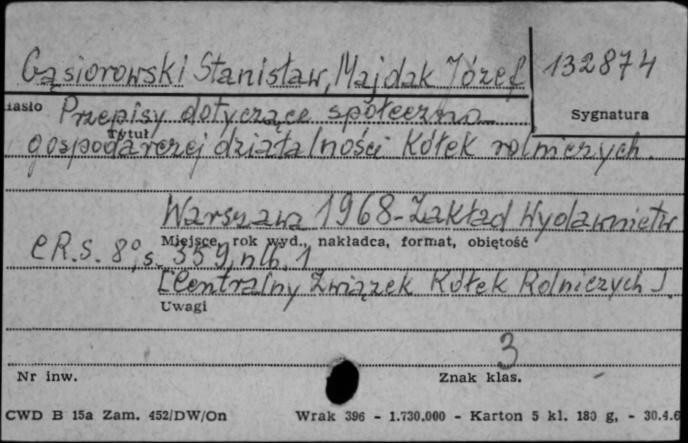 Gąsiorowski Stanisław, Majdak Józef
132874
iasło Przepisy dotyczące społeczno
Sygnatura
Tytuł
gospodarczej działalności Kółek rolniczych.
Warszawa 1968 - Zakład Wydawnictw
Miejsce, rok wyd., nakładca, format, objętość
CRS. 8°, s. 559, nlb. 1
[Centralny Związek Kółek Rolniczych].
Uwagi
3
Nr inw.
Znak klas.
CWD B 15a Zam. 452/DW/On
Wrak 396 - 1.730.000 - Karton 5 kl. 180 g. - 30.4.6